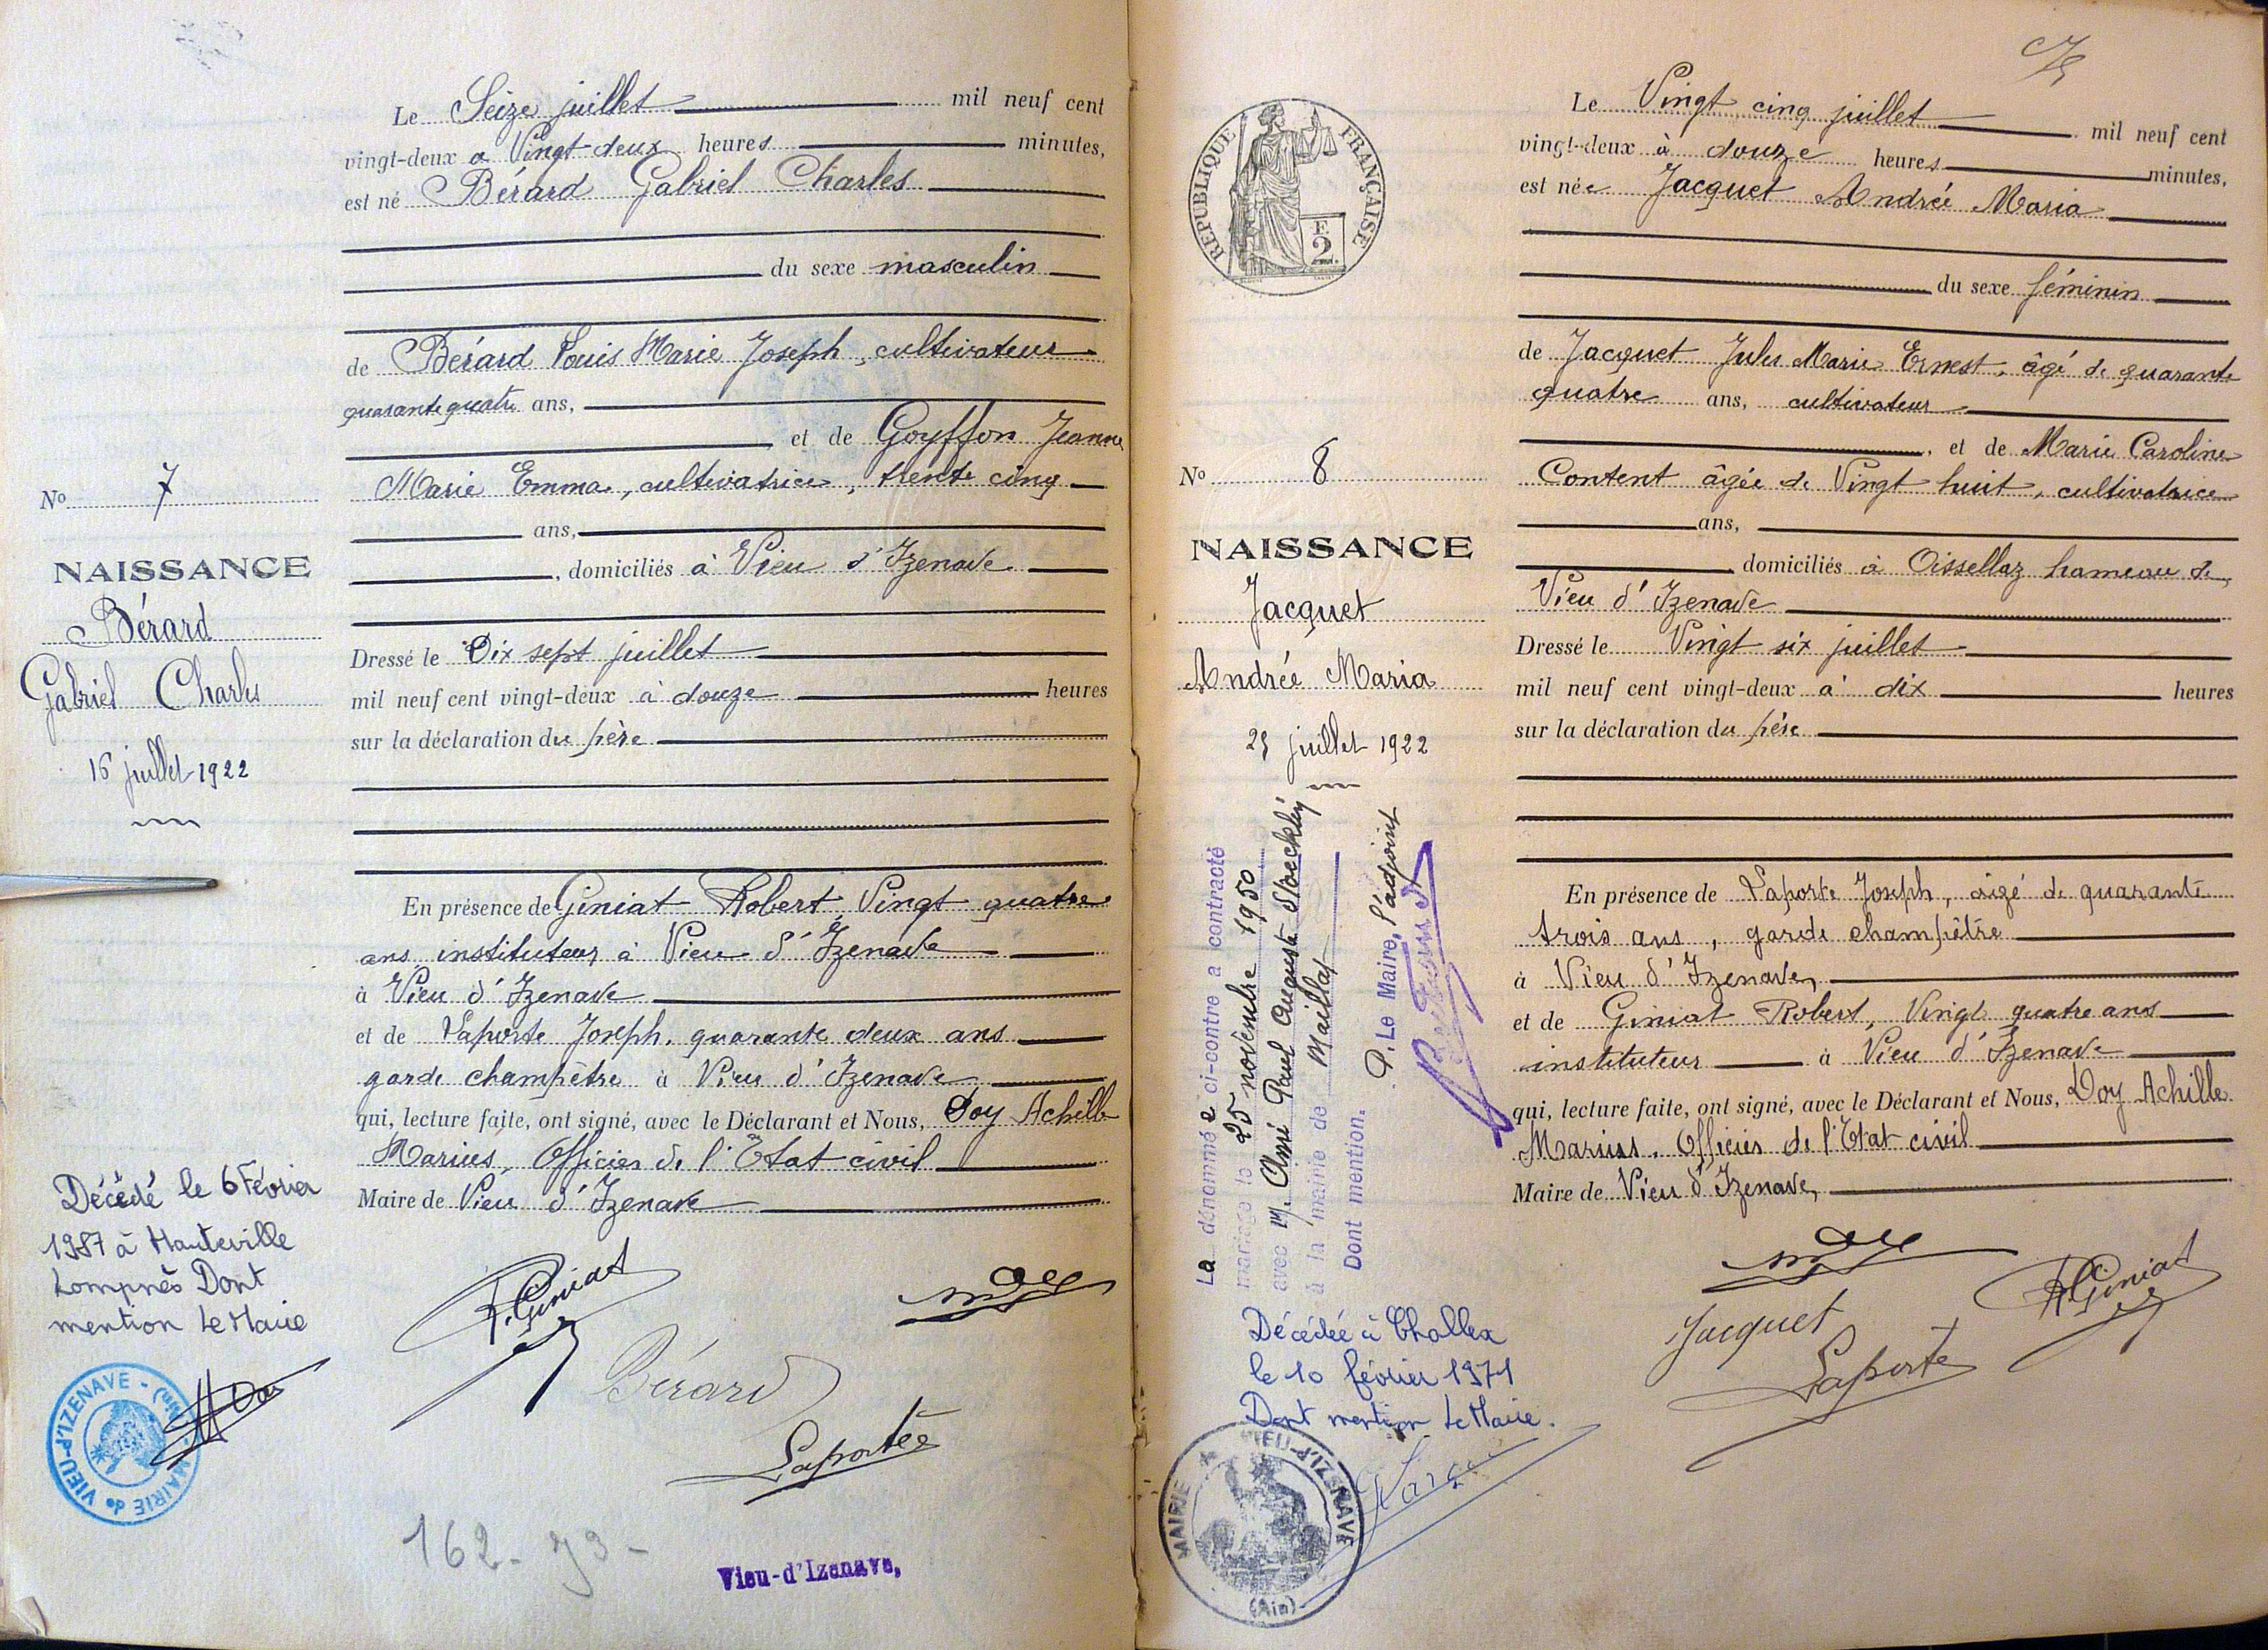 Le Seize juillet mil neuf cent
vingt-deux à Vingt-deux heures minutes,
est né Bérard Gabriel Charles
du sexe masculin
de Bérard Louis Marie Joseph, cultivateur
quarante quatre ans,
et de Goyffon Jeanne
Marie Emma, cultivatrice, trente cinq
ans,
, domiciliés à Vieu d'Izenave
Dressé le Dix sept juillet
mil neuf cent vingt-deux à douze heures
sur la déclaration du père
En présence de Giniat Robert, Vingt quatre
ans instituteur à Vieu d'Izenave
à Vieu d'Izenave
et de Laporte Joseph, quarante deux ans
garde champêtre à Vieu d'Izenave
qui, lecture faite, ont signé, avec le Déclarant et Nous, Doy Achille
Marius, Officier de l'Etat civil
Maire de Vieu d'Izenave
R. Giniat
Bérard
Laporte
No 7
NAISSANCE
Bérard
Gabriel Charles
16 juillet 1922
Décédé le 6 Février
1987 à Hauteville
Lompnès Dont
mention Le Maire
MAIRIE de VIEU-d'IZENAVE - (Ain)
162 - 73 -
Vieu-d'Izenave,
Le Vingt cinq juillet mil neuf cent
vingt-deux à douze heures minutes,
est née Jacquet Andrée Maria
du sexe féminin
de Jacquet Jules Marie Ernest, âgé de quarante
quatre ans, cultivateur
, et de Marie Caroline
Content âgée de Vingt huit, cultivatrice
ans,
domiciliés à Oissellaz hameau de
Vieu d'Izenave
Dressé le Vingt six juillet
mil neuf cent vingt-deux à dix heures
sur la déclaration du père
En présence de Laporte Joseph, âgé de quarante
trois ans, garde champêtre
à Vieu d'Izenave,
et de Giniat Robert, Vingt quatre ans
instituteur à Vieu d'Izenave
qui, lecture faite, ont signé, avec le Déclarant et Nous, Doy Achille
Marius, Officier de l'Etat civil
Maire de Vieu d'Izenave,
R. Giniat
Jacquet
Laporte
REPUBLIQUE FRANÇAISE
E
2
No 8
NAISSANCE
Jacquet
Andrée Maria
25 juillet 1922
La dénommée ci-contre a contracté
mariage le 25 novembre 1950
avec M. Aimé Paul Auguste Stoecklij
à la mairie de Maillat
Dont mention.
P. Le Maire, l'adjoint
Décédée à Challex
le 10 février 1971
Dont mention Le Maire.
MAIRIE de VIEU-d'IZENAVE
(Ain)